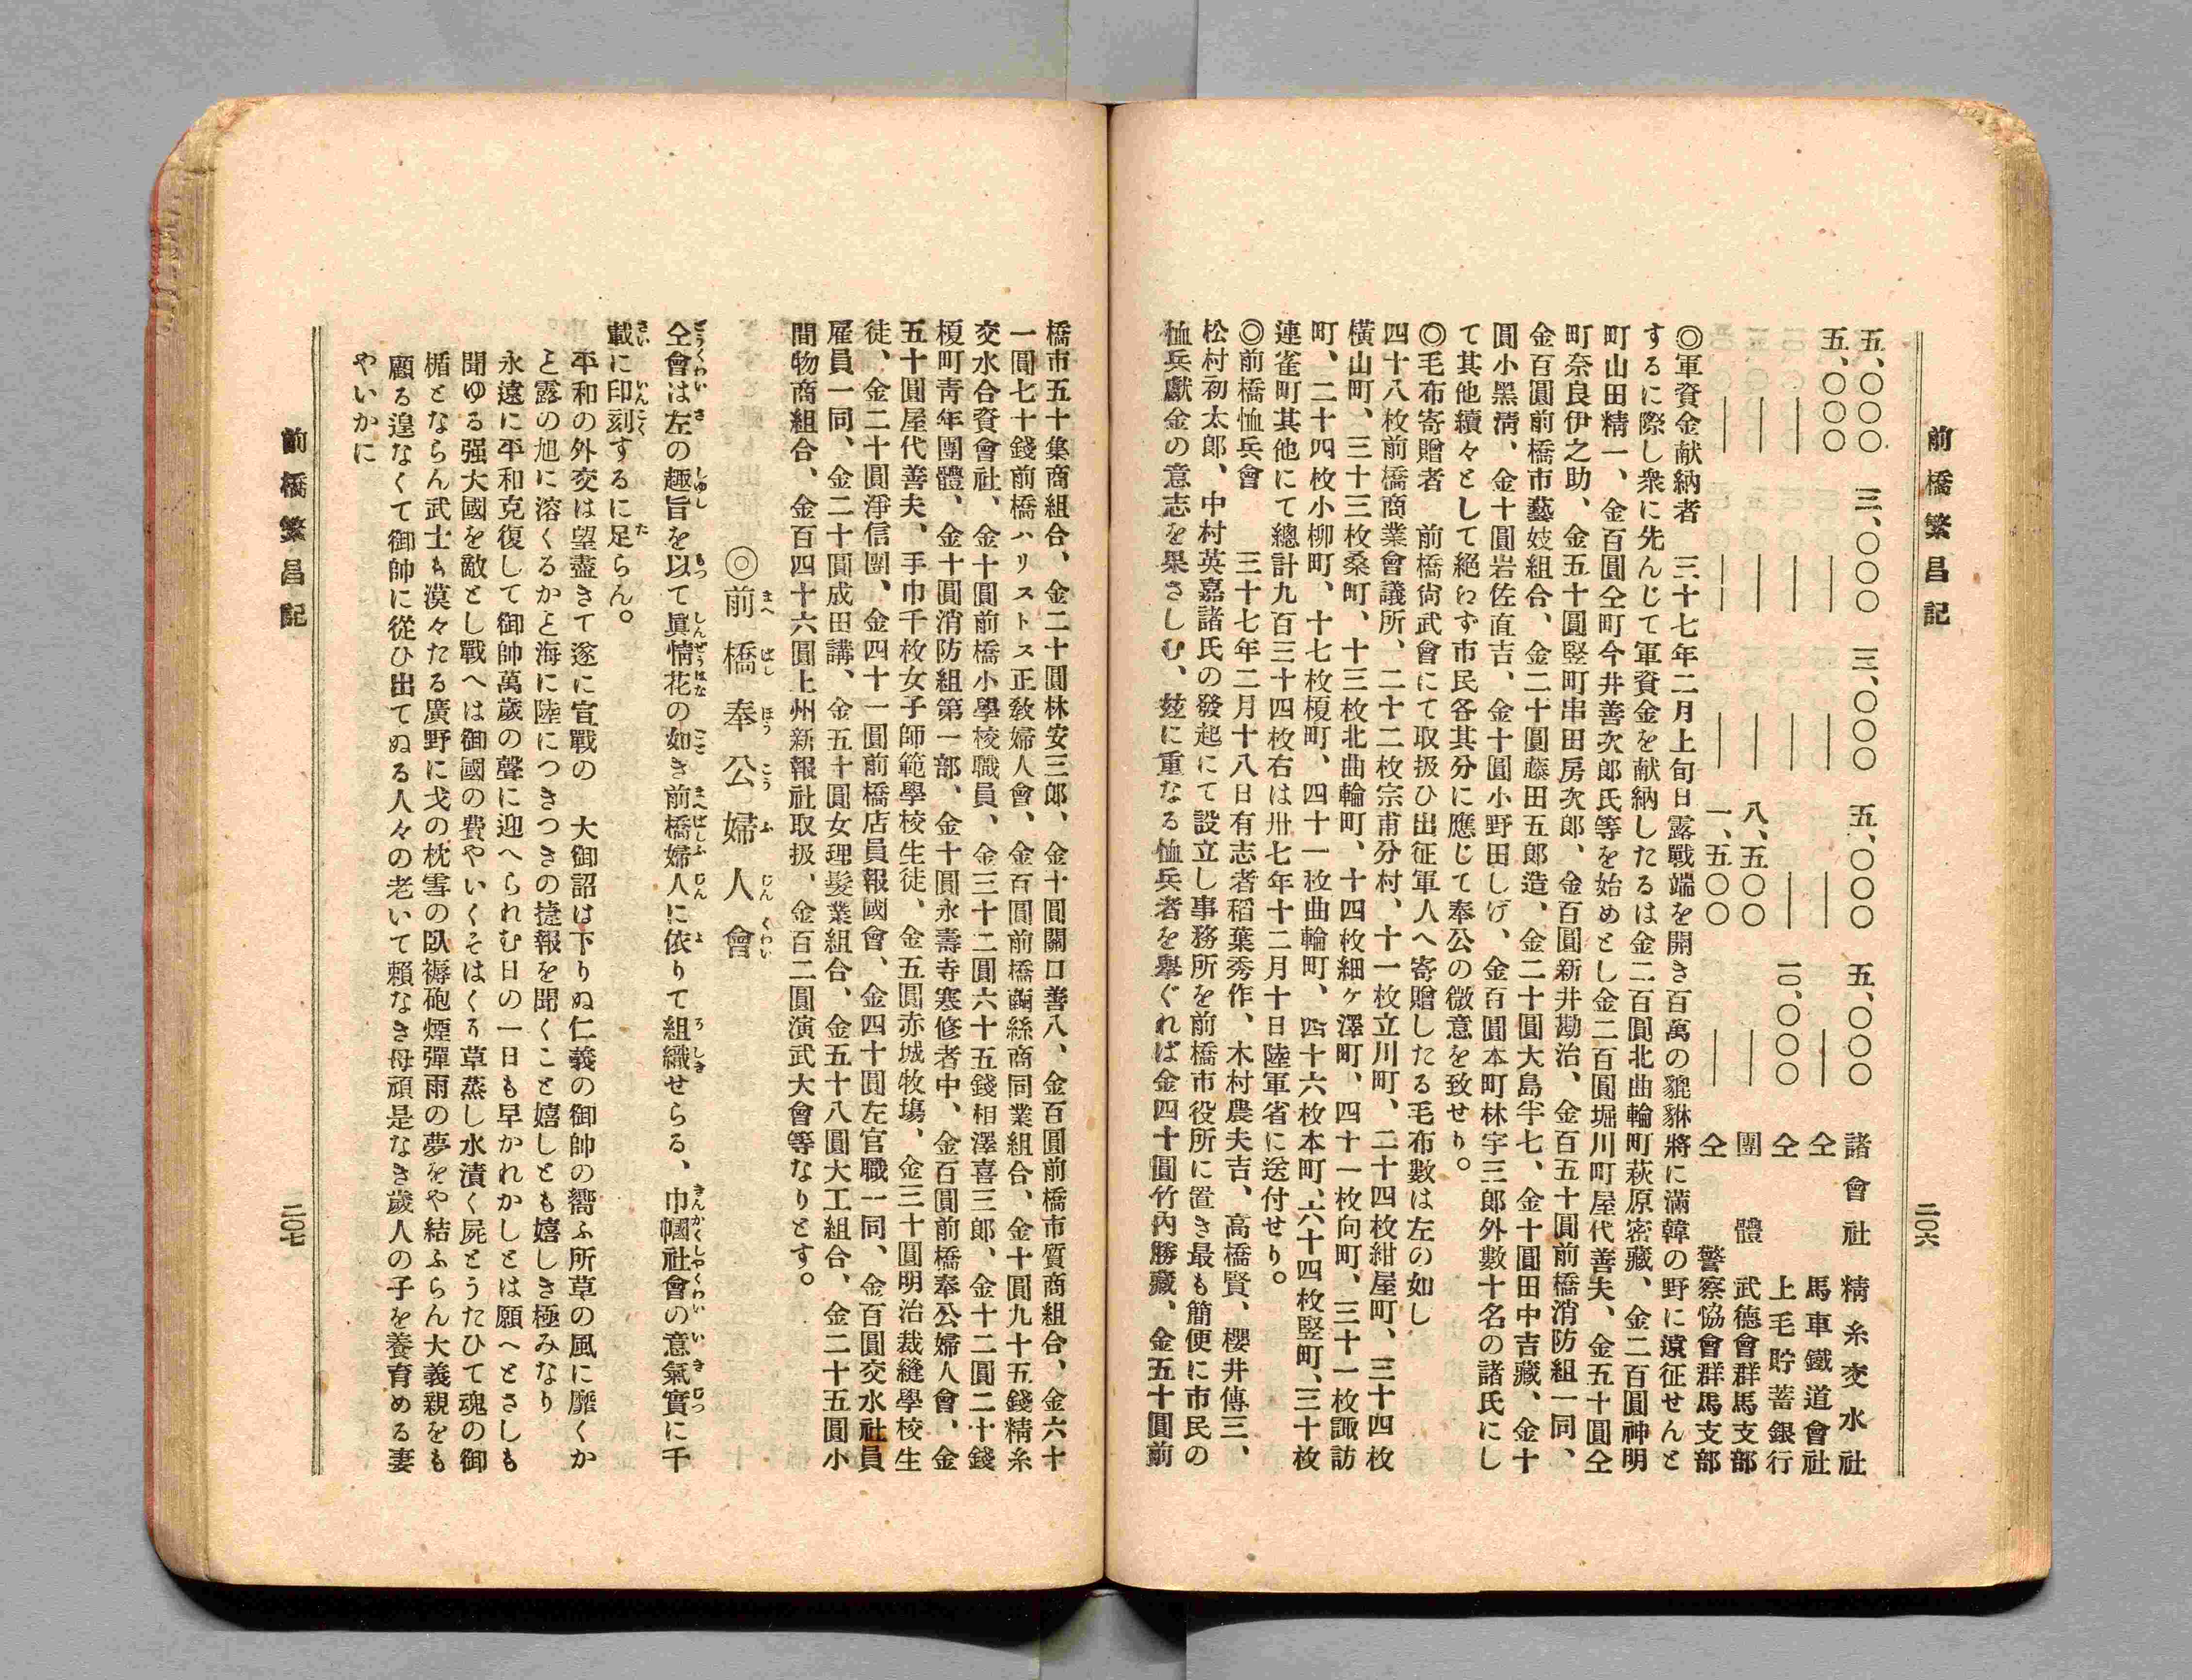 前橋繁昌記
二〇六
五、〇〇〇　三、〇〇〇　三、〇〇〇　五、〇〇〇　五、〇〇〇　諸會社　精糸交水社
五、〇〇〇　―　―　―　―　仝　馬車鐵道會社
―　―　―　―　一〇、〇〇〇　仝　上毛貯蓄銀行
―　―　―　八、五〇〇　―　團體　武德會群馬支部
―　―　―　一、五〇〇　―　仝　警察協會群馬支部
◎軍資金献納者　三十七年二月上旬日露戰端を開き百萬の貔貅將に滿韓の野に遠征せんと
するに際し衆に先んじて軍資金を献納したるは金二百圓北曲輪町萩原密藏、金二百圓神明
町山田精一、金百圓仝町今井善次郎氏等を始めとし金二百圓堀川町屋代善夫、金五十圓仝
町奈良伊之助、金五十圓竪町串田房次郎、金百圓新井勘治、金百五十圓前橋消防組一同、
金百圓前橋市藝妓組合、金二十圓藤田五郎造、金二十圓大島半七、金十圓田中吉藏、金十
圓小黑淸、金十圓岩佐直吉、金十圓小野田しげ、金百圓本町林宇三郎外數十名の諸氏にし
て其他續々として絕わず市民各其分に應じて奉公の微意を致せり。
◎毛布寄贈者　前橋尙武會にて取扱ひ出征軍人へ寄贈したる毛布數は左の如し
四十八枚前橋商業會議所、二十二枚宗甫分村、十一枚立川町、二十四枚紺屋町、三十四枚
橫山町、三十三枚桑町、十三枚北曲輪町、十四枚細ケ澤町、四十一枚向町、三十一枚諏訪
町、二十四枚小柳町、十七枚榎町、四十一枚曲輪町、四十六枚本町、六十四枚竪町、三十枚
連雀町其他にて總計九百三十四枚右は卅七年十二月十日陸軍省に送付せり。
◎前橋恤兵會　三十七年二月十八日有志者稻葉秀作、木村農夫吉、高橋賢、櫻井傳三、
松村初太郎、中村英嘉諸氏の發起にて設立し事務所を前橋市役所に置き最も簡便に市民の
恤兵獻金の意志を果さしむ、玆に重なる恤兵者を擧ぐれば金四十圓竹內勝藏、金五十圓前
橋市五十集商組合、金二十圓林安三郎、金十圓關口善八、金百圓前橋市質商組合、金六十
一圓七十錢前橋ハリストス正敎婦人會、金百圓前橋繭絲商同業組合、金十圓九十五錢精糸
交水合資會社、金十圓前橋小學校職員、金三十二圓六十五錢相澤喜三郎、金十二圓二十錢
榎町靑年團體、金十圓消防組第一部、金十圓永壽寺寒修者中、金百圓前橋奉公婦人會、金
五十圓屋代善夫、手巾千枚女子師範學校生徒、金五圓赤城牧塲、金三十圓明治裁縫學校生
徒、金二十圓淨信團、金四十一圓前橋店員報國會、金四十圓左官職一同、金百圓交水社員
雇員一同、金二十圓成田講、金五十圓女理髮業組合、金五十八圓大工組合、金二十五圓小
間物商組合、金百四十六圓上州新報社取扱、金百二圓演武大會等なりとす。
◎前橋奉公婦人會
仝會は左の趣旨を以て眞情花の如き前橋婦人に依りて組織せらる、巾幗社會の意氣實に千
載に印刻するに足らん。
平和の外交は望盡きて遂に宣戰の　大御詔は下りぬ仁義の御帥の嚮ふ所草の風に靡くか
と露の旭に溶くるかと海に陸につきつきの捷報を聞くこと嬉しとも嬉しき極みなり
永遠に平和克復して御帥萬歲の聲に迎へられむ日の一日も早かれかしとは願へとさしも
聞ゆる强大國を敵とし戰へは御國の費やいくそはくろ草蒸し水漬く屍とうたひて魂の御
楯とならん武士も漠々たる廣野に戈の枕雪の臥褥砲煙彈雨の夢をや結ふらん大義親をも
顧る遑なくて御帥に從ひ出てぬる人々の老いて賴なき母頑是なき歲人の子を養育める妻
やいかに
前橋繁昌記
二〇七